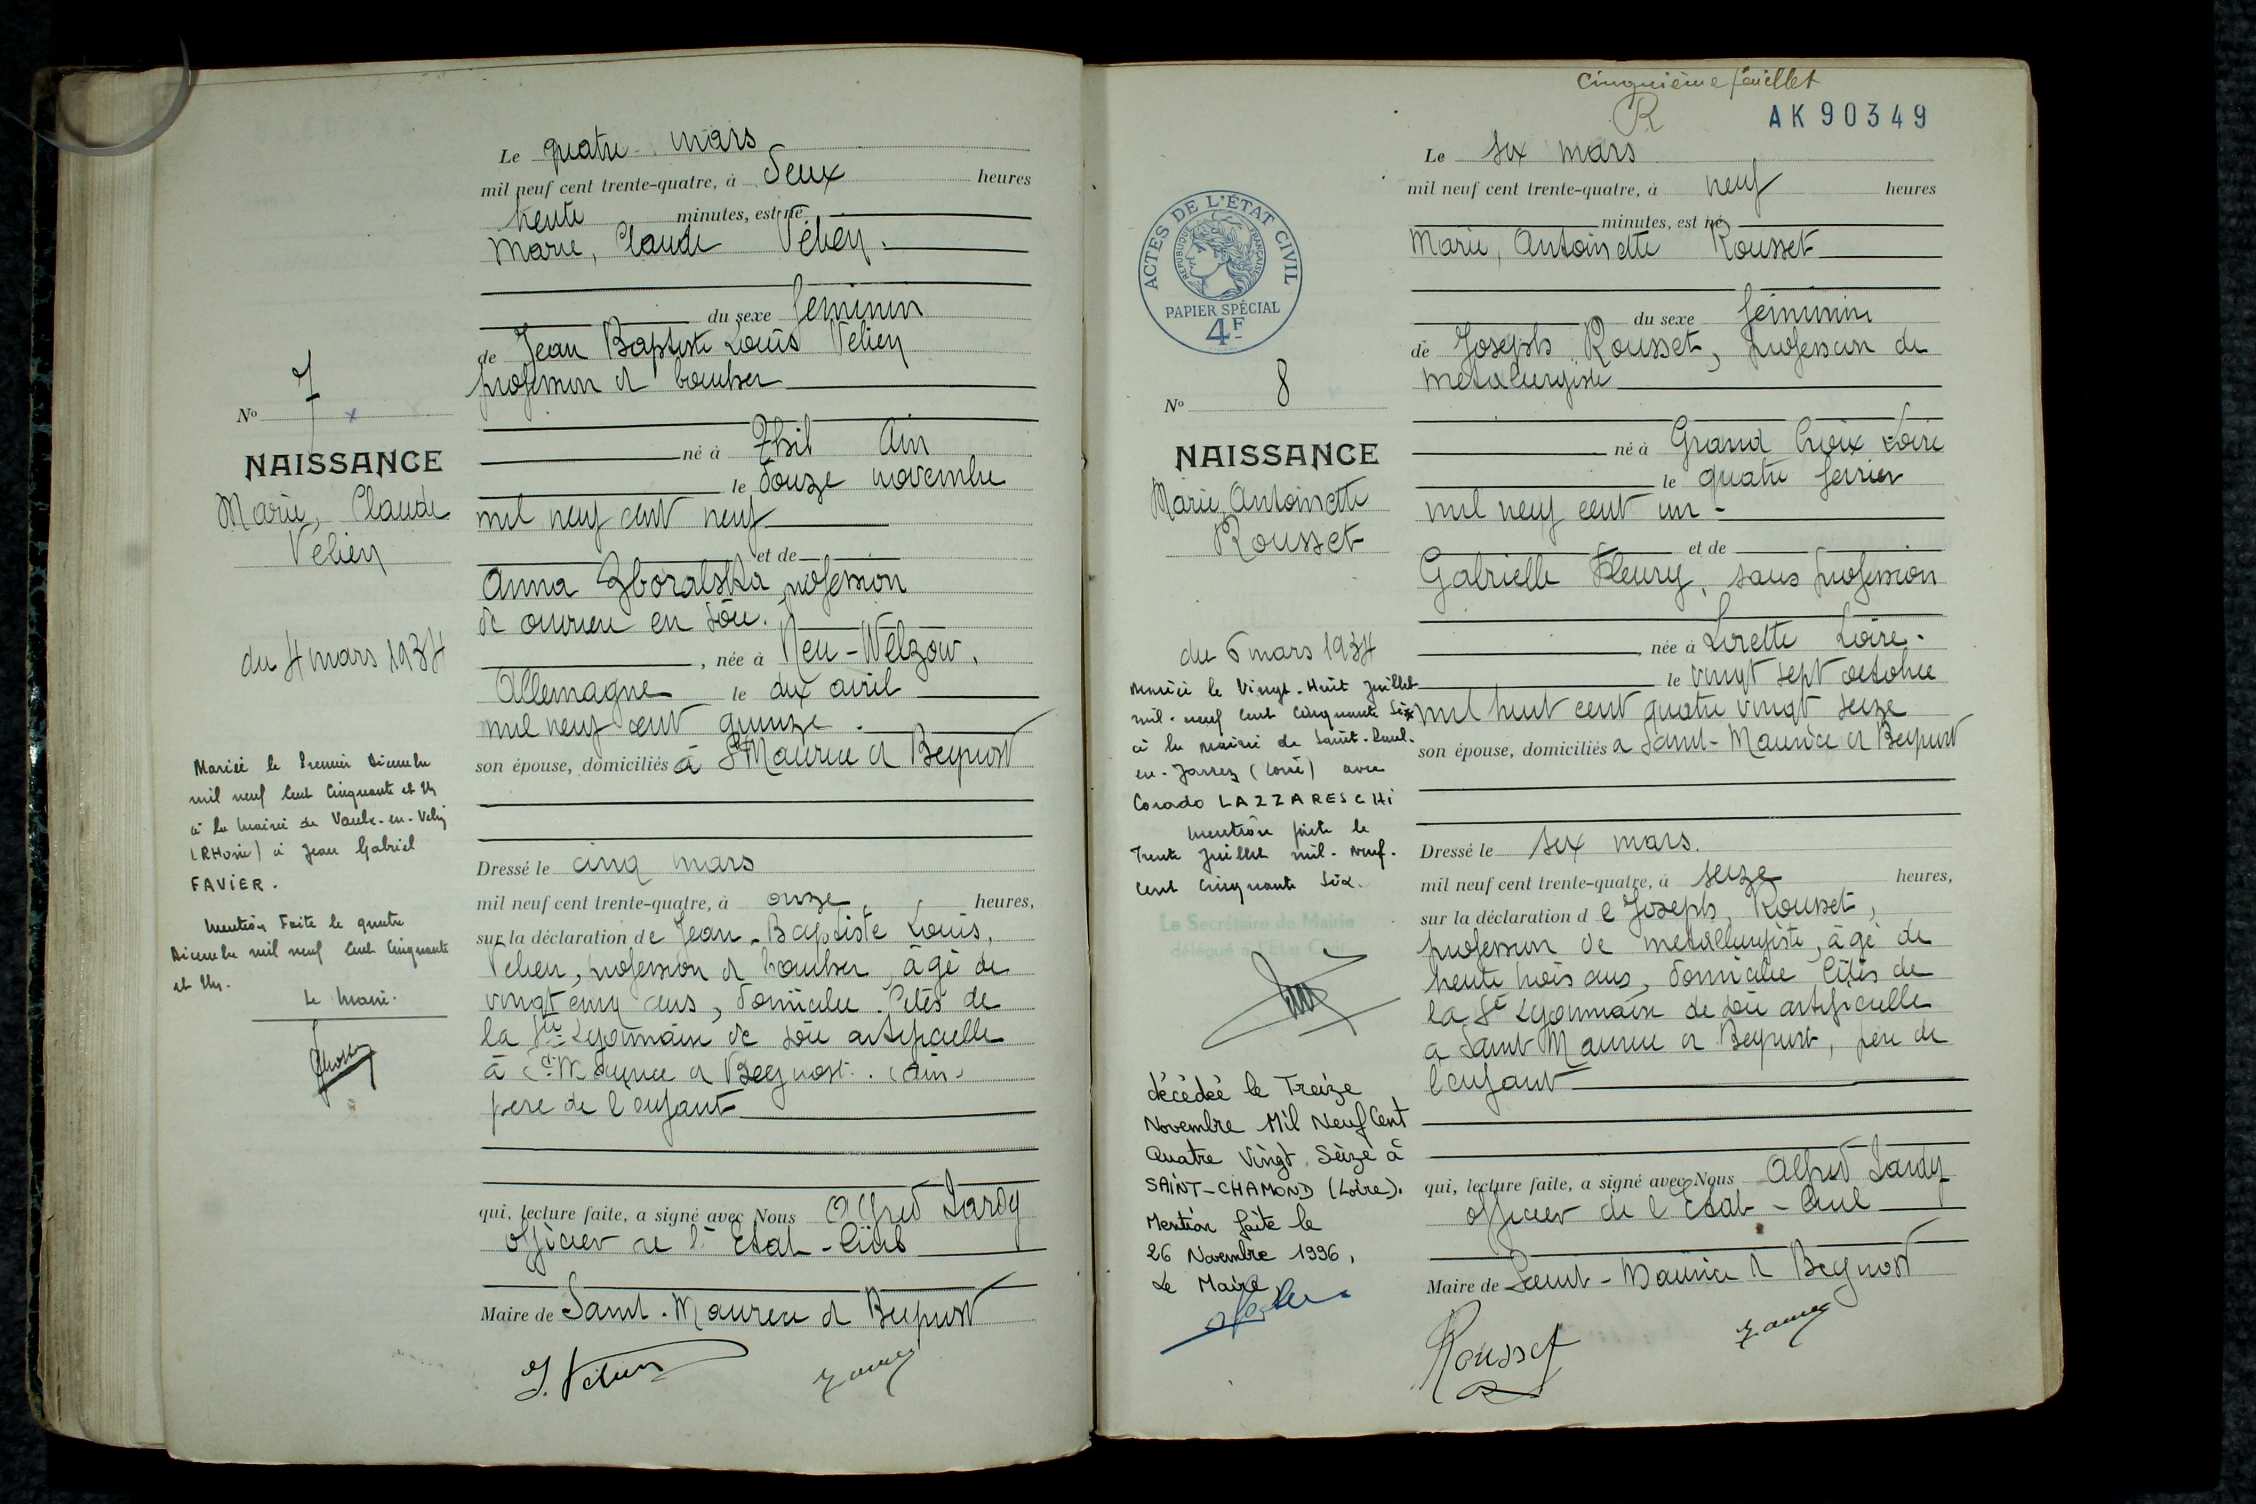 Le quatre mars
mil neuf cent trente-quatre, à deux heures
trente minutes, est né
Marie, Claude Vélien.
du sexe féminin
de Jean Baptiste Louis Vélien
profession d
né à Thil Ain
le douze novembre
mil neuf cent neuf
et de
Anna Zboralska profession
de ouvrière en soie.
, née à Neu-Welzow,
Allemagne le dix avril
mil neuf cent quinze.
son épouse, domiciliés à St Maurice d Beynost
Dressé le cinq mars
mil neuf cent trente-quatre, à onze heures,
sur la déclaration de Jean-Baptiste Louis,
Vélien, profession d, âgé de
vingt cinq ans, domicilié Cités de
la Sté Lyonnaise de soie artificielle
à St Maurice d Beynost. (Ain)
père de l'enfant
qui, lecture faite, a signé avec Nous Alfred Lardy
officier de l'Etat-Civil
Maire de Saint-Maurice d Beynost
J. Vélien
No 7
NAISSANCE
Marie, Claude
Vélien
du 4 mars 1934
Mariée le Premier Décembre
mil neuf Cent Cinquante et Un
à la Mairie de Vaulx-en-Velin
(RHône) à Jean Gabriel
FAVIER.
Mention Faite le quatre
Décembre mil neuf Cent Cinquante
et Un.
Le Maire.
Cinquième feuillet
R
AK90349
Le six mars
mil neuf cent trente-quatre, à neuf heures
minutes, est né
Marie, Antoinette Rousset
du sexe féminin
de Joseph Rousset, profession de
métallurgiste
né à Grand Croix Loire
le quatre février
mil neuf cent un -
et de
Gabrielle Fleury, sans profession
née à Lorette Loire.
le vingt sept octobre
mil huit cent quatre vingt seize
son épouse, domiciliés à Saint-Maurice d Beynost
Dressé le six mars.
mil neuf cent trente-quatre, à seize heures,
sur la déclaration de Joseph Rousset,
profession de métallurgiste, âgé de
trente trois ans, domicilié Cités de
la Sté Lyonnaise de soie artificielle
à Saint Maurice d Beynost, père de
l'enfant
qui, lecture faite, a signé avec Nous Alfred Lardy
officier de l'Etat-Civil
Maire de Saint-Maurice d Beynost
Rousset
ACTES DE L'ÉTAT CIVIL
RÉPUBLIQUE FRANÇAISE
PAPIER SPÉCIAL
4F
No 8
NAISSANCE
Marie, Antoinette
Rousset
du 6 mars 1934
Mariée le Vingt-Huit Juillet
mil-neuf Cent Cinquante Six
à la mairie de Saint-Paul-
en-Jarrez (Loire) avec
Corado LAZZARESCHI
Mention faite le
Trente Juillet mil-neuf-
Cent Cinquante Six.
Le Secrétaire de Mairie
délégué à l'Etat Civil
décédée le Treize
Novembre Mil Neuf Cent
Quatre Vingt Seize à
SAINT-CHAMOND (Loire).
Mention faite le
26 Novembre 1996,
Le Maire